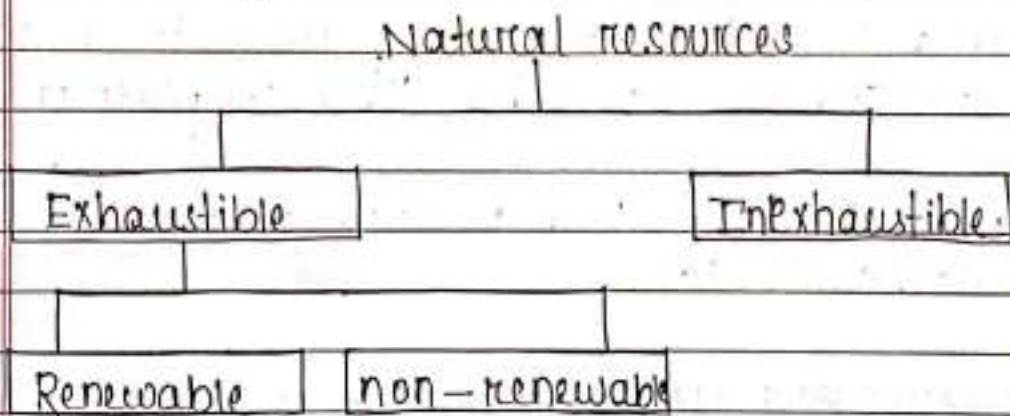 Natural resources
Exhaustible Inexhaustible.
Renewable non-renewable